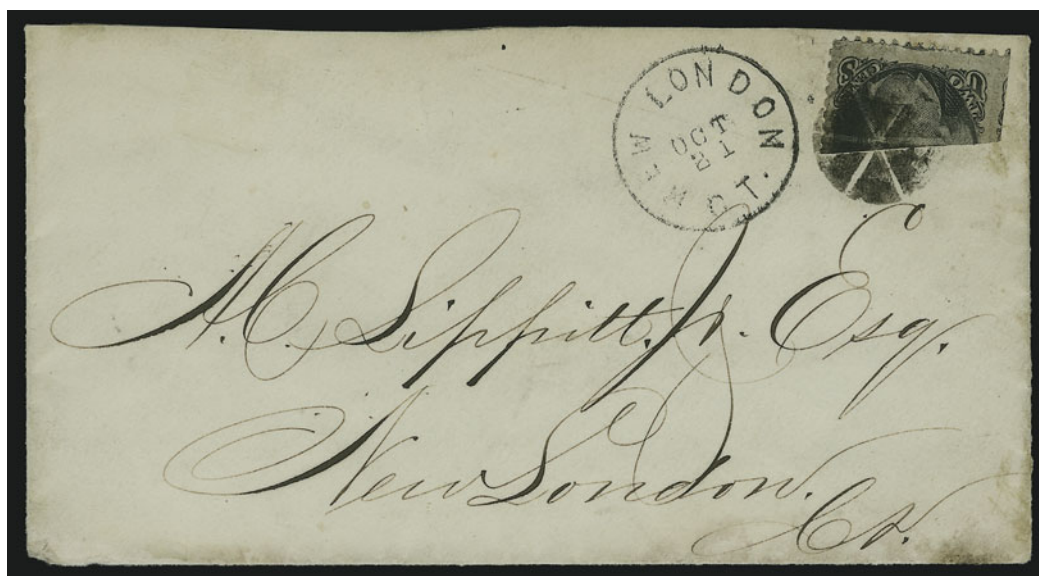 NEW LONDON CT.
OCT
21
A. C. Lippitt, Jr. Esq.
New London.
Ct.